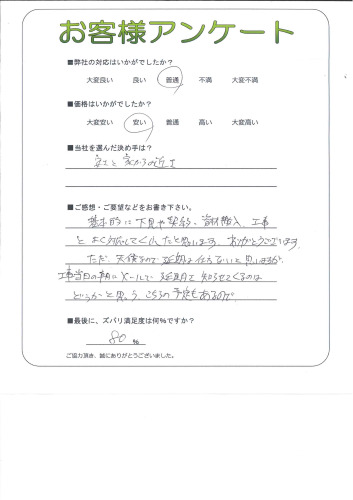 お客様アンケート
■弊社の対応はいかがでしたか？
大変良い 良い 普通 不満 大変不満
■価格はいかがでしたか？
大変安い 安い 普通 高い 大変高い
■当社を選んだ決め手は？
安さと家からの近さ
■ご感想・ご要望などをお書き下さい。
基本的に下見や契約、資材搬入、工事
とよく対応してくれたと思います。ありがとうございます。
ただ、天候なので延期は仕方ないと思いますが、
工事当日の朝にメールで延期を知らせてくるのは
どうかと思う。こちらの予定もあるので。
■最後に、ズバリ満足度は何％ですか？
80 %
ご協力頂き、誠にありがとうございました。